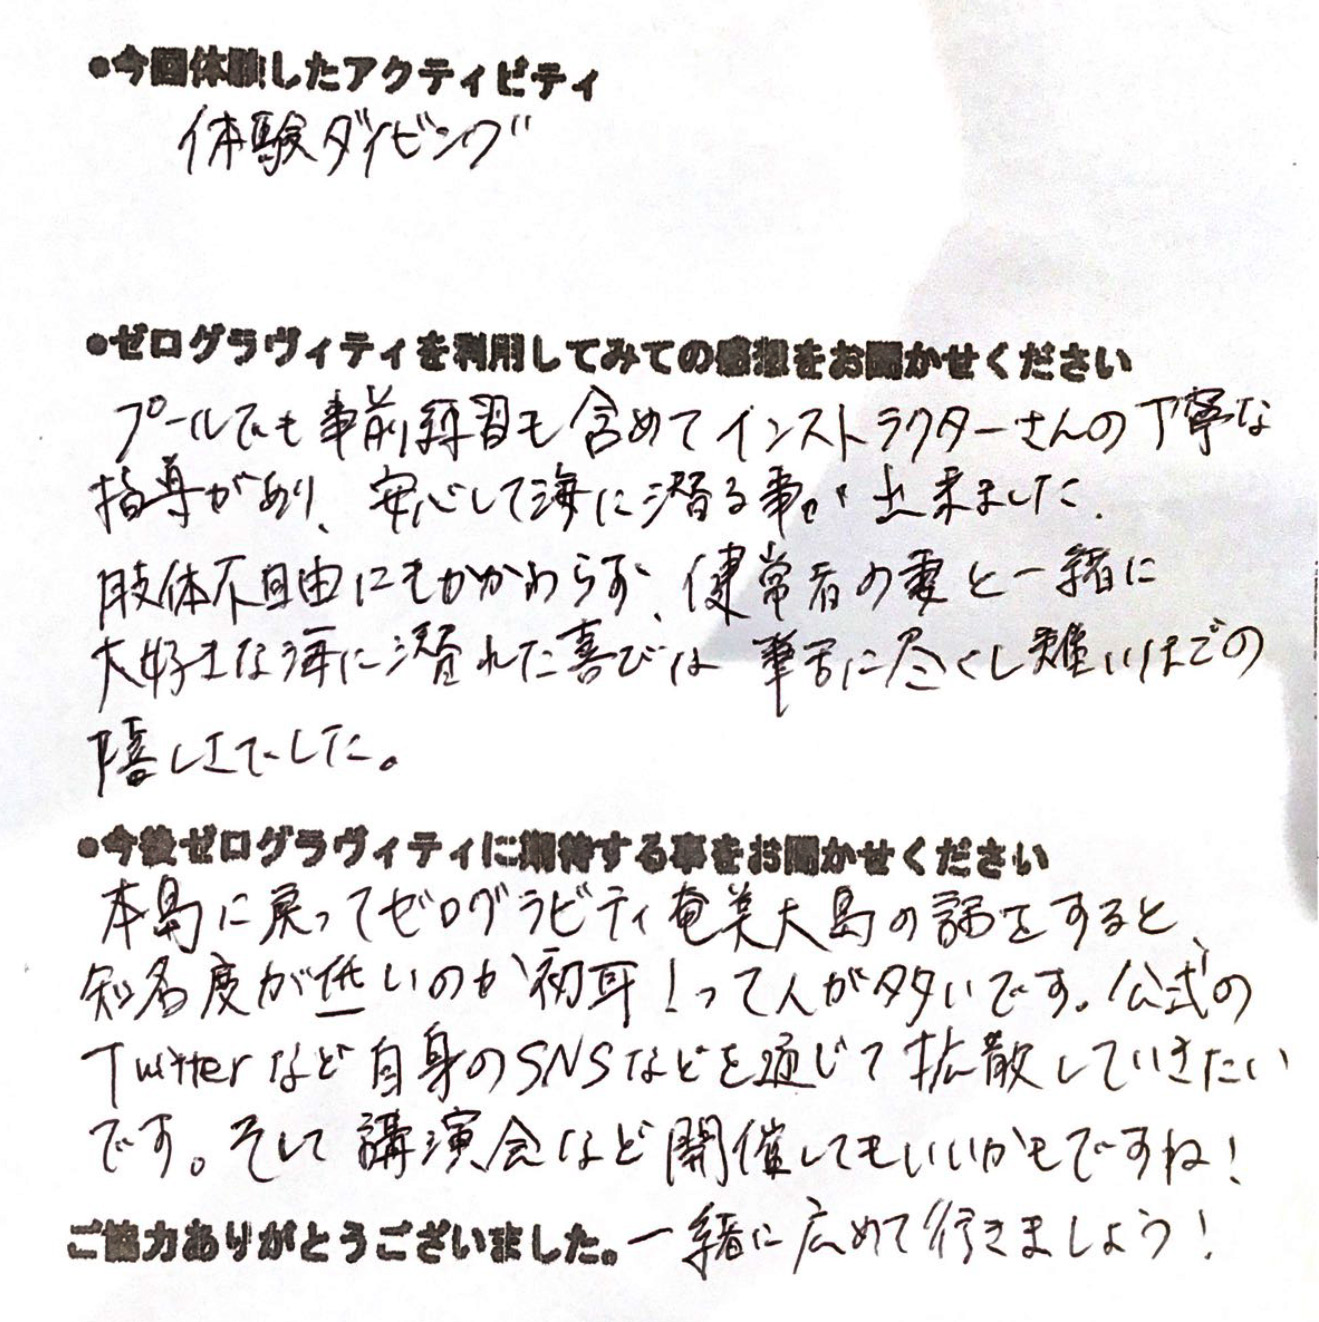 ●今回体験したアクティビティ
体験ダイビング
●ゼログラヴィティを利用してみての感想をお聞かせください
プールでも事前練習も含めてインストラクターさんの丁寧な
指導があり、安心して海に潜る事が出来ました。
肢体不自由にもかかわらず、健常者の妻と一緒に
大好きな海に潜れた喜びは筆舌に尽くし難いほどの
嬉しさでした。
●今後ゼログラヴィティに期待する事をお聞かせください
本島に戻ってゼログラビティ奄美大島の話をすると、
知名度が低いのか初耳！って人が多いです。公式の
Twitterなど自身のSNSなどを通じて拡散していきたい
です。そして講演会など開催してもいいかもですね！
ご協力ありがとうございました。一緒に広めて行きましょう！